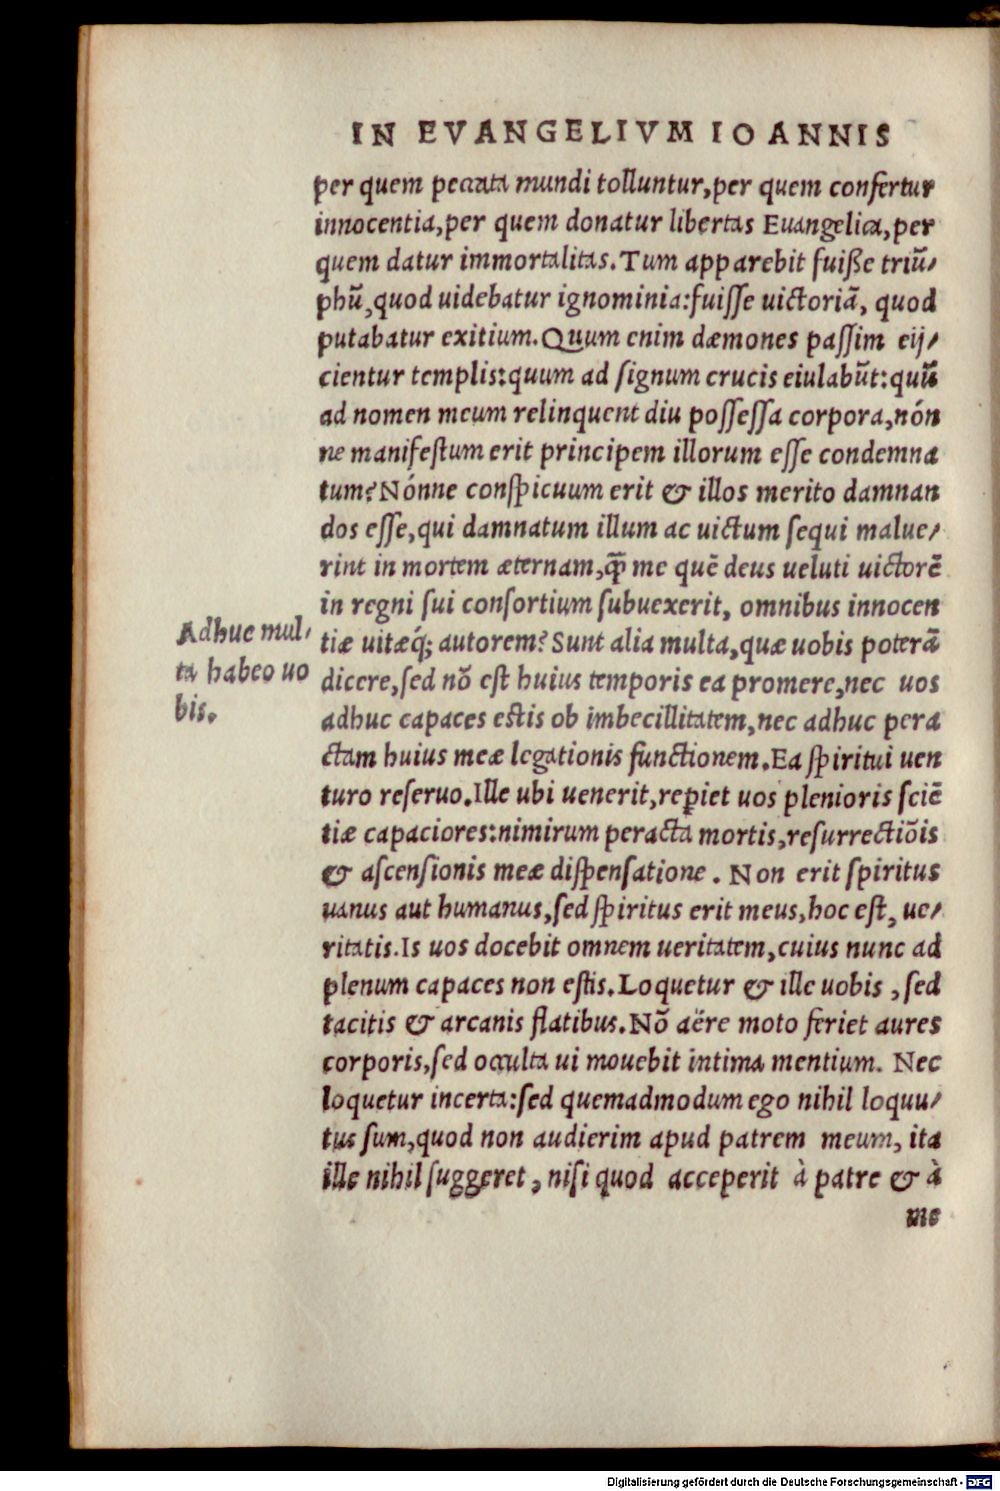 IN EVANGELIVM IOANNIS
per quem peccata mundi tolluntur,per quem confertur
innocentia,per quem donatur libertas Euangelica,per
quem datur immortalitas.Tum apparebit fuiße triũ/
phũ,quod uidebatur ignominia:fuiſſe uictoriã, quod
putabatur exitium.Quum enim dæmones paſſim eij/
cientur templis:quum ad ſignum crucis eiulabũt:quũ
ad nomen meum relinquent diu poſſeſſa corpora,nón
ne manifeſtum erit principem illorum eſſe condemna
tum?Nónne conſpicuum erit & illos merito damnan
dos eſſe,qui damnatum illum ac uictum ſequi malue/
rint in mortem æternam,q̃ me quẽ deus ueluti uictorẽ
in regni ſui conſortium ſubuexerit, omnibus innocen
tiæ uitæq́; autorem? Sunt alia multa,quæ uobis poterã
dicere,ſed nõ eſt huius temporis ea promere,nec uos
adhuc capaces eſtis ob imbecillitatem,nec adhuc pera
ctam huius meæ legationis functionem.Ea ſpiritui uen
turo reſeruo.Ille ubi uenerit,reꝑiet uos plenioris ſciẽ
tiæ capaciores:nimirum peracta mortis,reſurrectiõis
& aſcenſionis meæ diſpenſatione. Non erit ſpiritus
uanus aut humanus,ſed ſpiritus erit meus,hoc eſt, ue/
ritatis.Is uos docebit omnem ueritatem,cuius nunc ad
plenum capaces non eſtis.Loquetur & ille uobis ,ſed
tacitis & arcanis flatibus.Nõ aëre moto feriet aures
corporis,ſed occulta ui mouebit intima mentium. Nec
loquetur incerta:ſed quemadmodum ego nihil loquu/
tus ſum,quod non audierim apud patrem meum, ita
ille nihil ſuggeret, niſi quod acceperit à patre & à
me
Adhuc mul/
ta habeo uo
bis.
Digitalisierung gefördert durch die Deutsche Forschungsgemeinschaft - DFG